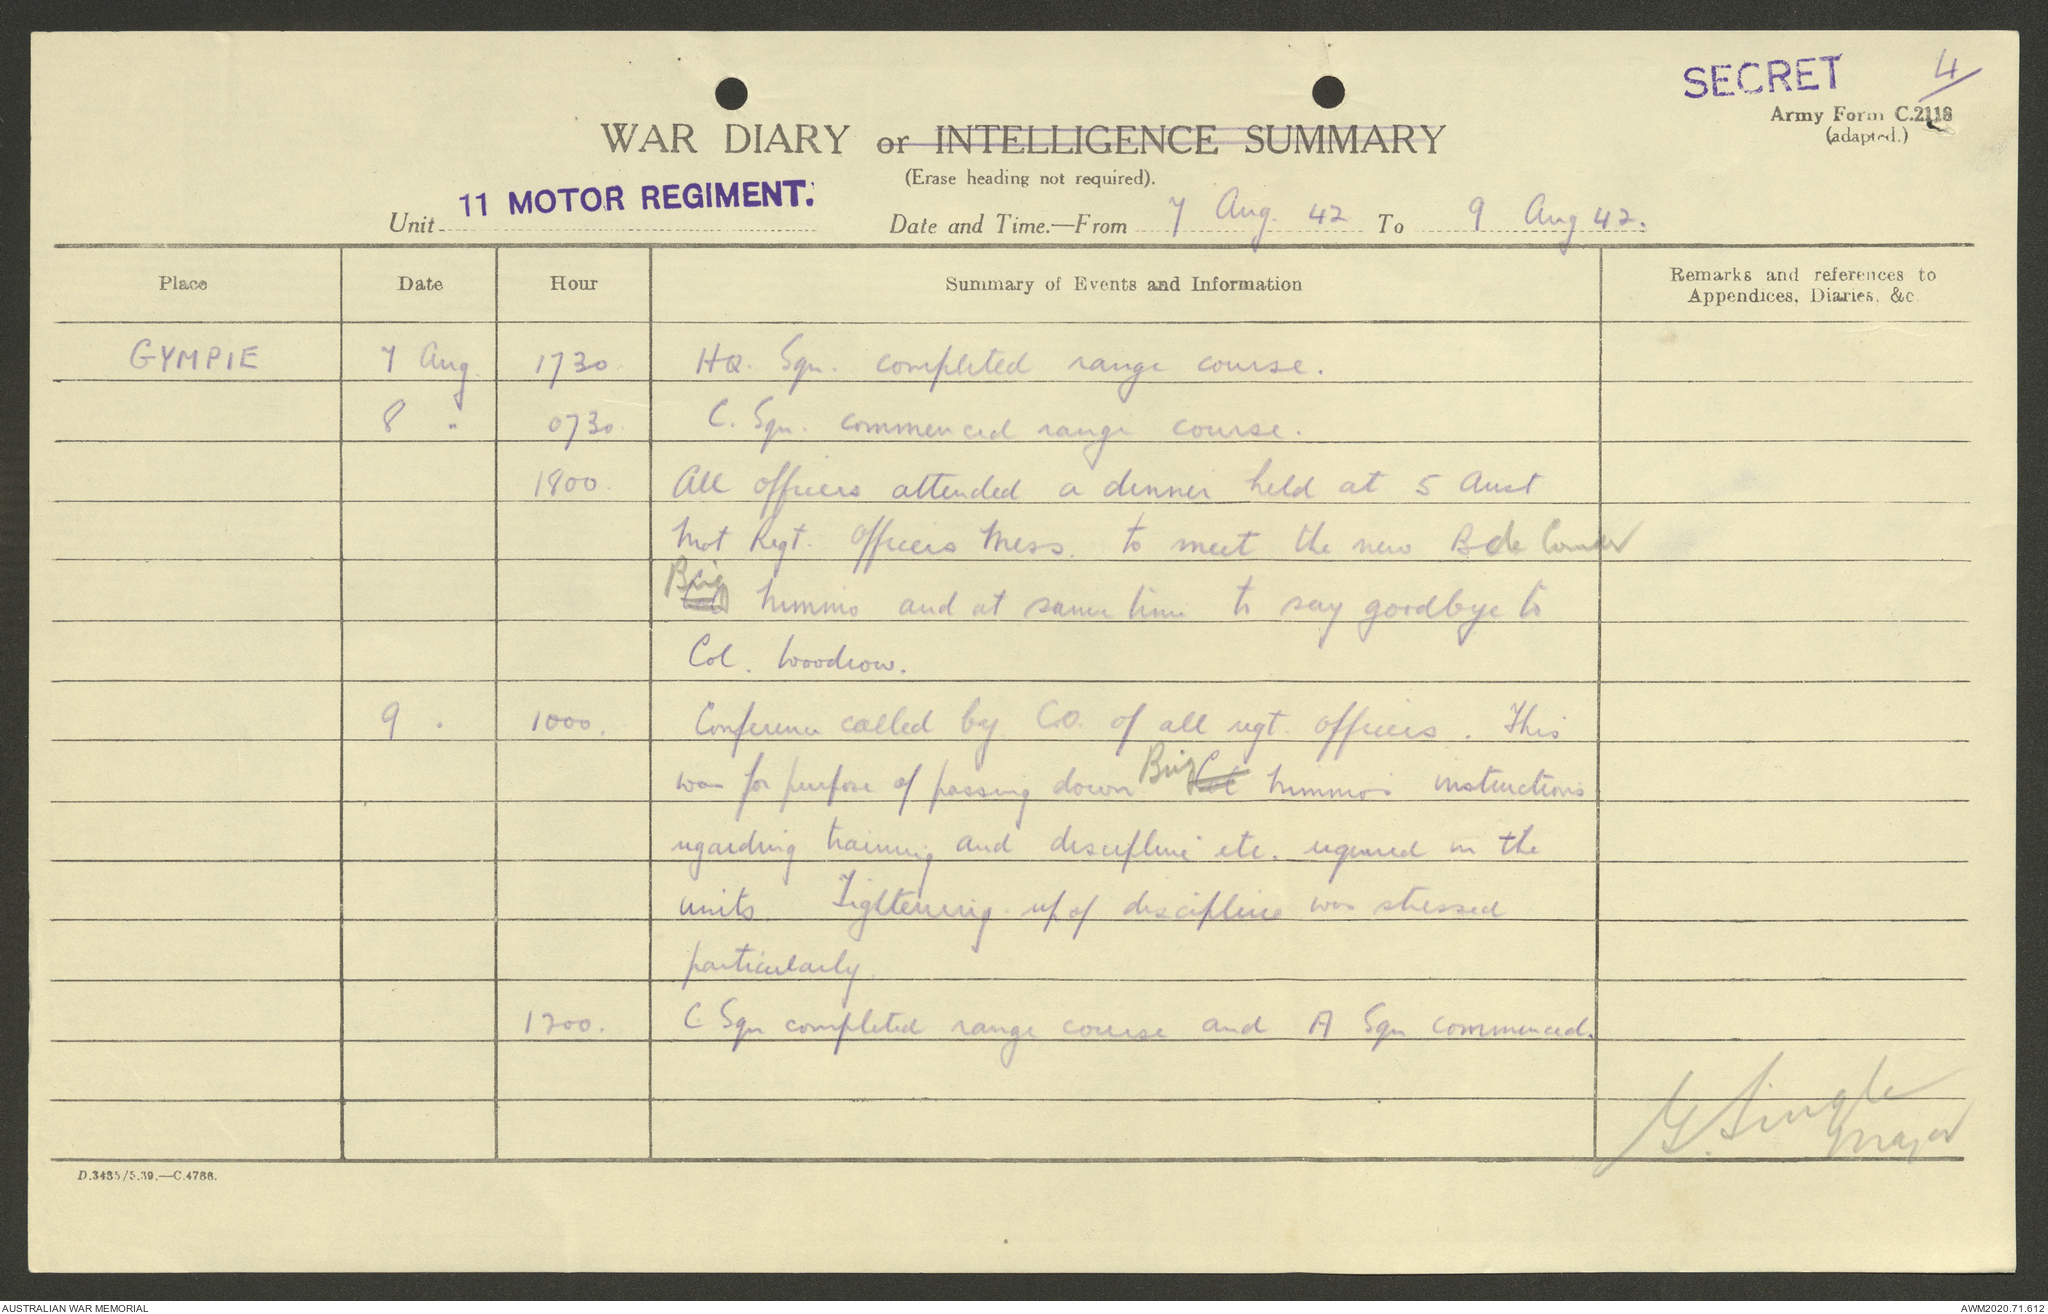 SECRET 4/
Army Form C.2118
(adapted.)
WAR DIARY or INTELLIGENCE SUMMARY
(Erase heading not required).
Unit 11 MOTOR REGIMENT. Date and Time.—From 7 Aug. 42 To 9 Aug 42.
Place Date Hour Summary of Events and Information Remarks and references to
Appendices, Diaries, &c.
GYMPIE 7 Aug. 1730 HQ. Sqn. completed range course.
8 " 0730 C. Sqn. commenced range course.
1800. All officers attended a dinner held at 5 Aust
Mot Regt. Officers Mess. to meet the new Bde Comder
Brig Col Nimmo and at same time to say goodbye to
Col. Woodrow.
9 . 1000. Conference called by CO. of all regt. officers. This
was for purpose of passing down Brig Col Nimmo's instructions
regarding training and discipline etc. required in the
units. Tightening up of discipline was stressed
particularly
1200. C Sqn completed range course and A Sqn commenced.
G. Single
Major
D.3435/5.39.—C.4788.
AUSTRALIAN WAR MEMORIAL AWM2020.71.612